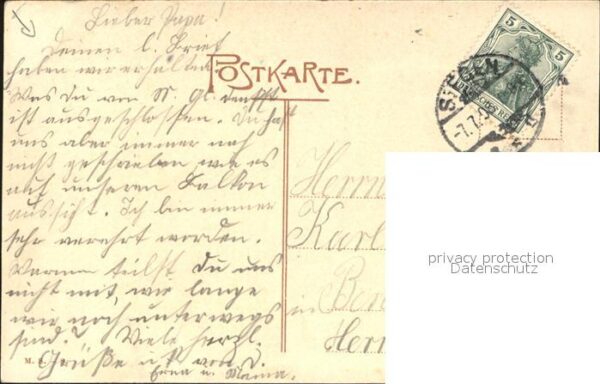 Lieber Papa!
Deinen l. Brief
haben wir erhalten
Was Du von N. Gl. denkst
ist ausgeschlossen. Du hast
uns aber immer noch
nicht geschrieben wie es
auf unseren Balkon
aussieht. Ich bin immer
sehr verehrt worden.
Warum teilst Du uns
nicht mit, wie lange
wir noch unterwegs
sind? Viele herzl.
Grüße u. von D.
Erna u. Mama.
POSTKARTE.
5 5
SIEGEN
7.7.
Herrn
Karl
in
Herr
M.
privacy protection
Datenschutz